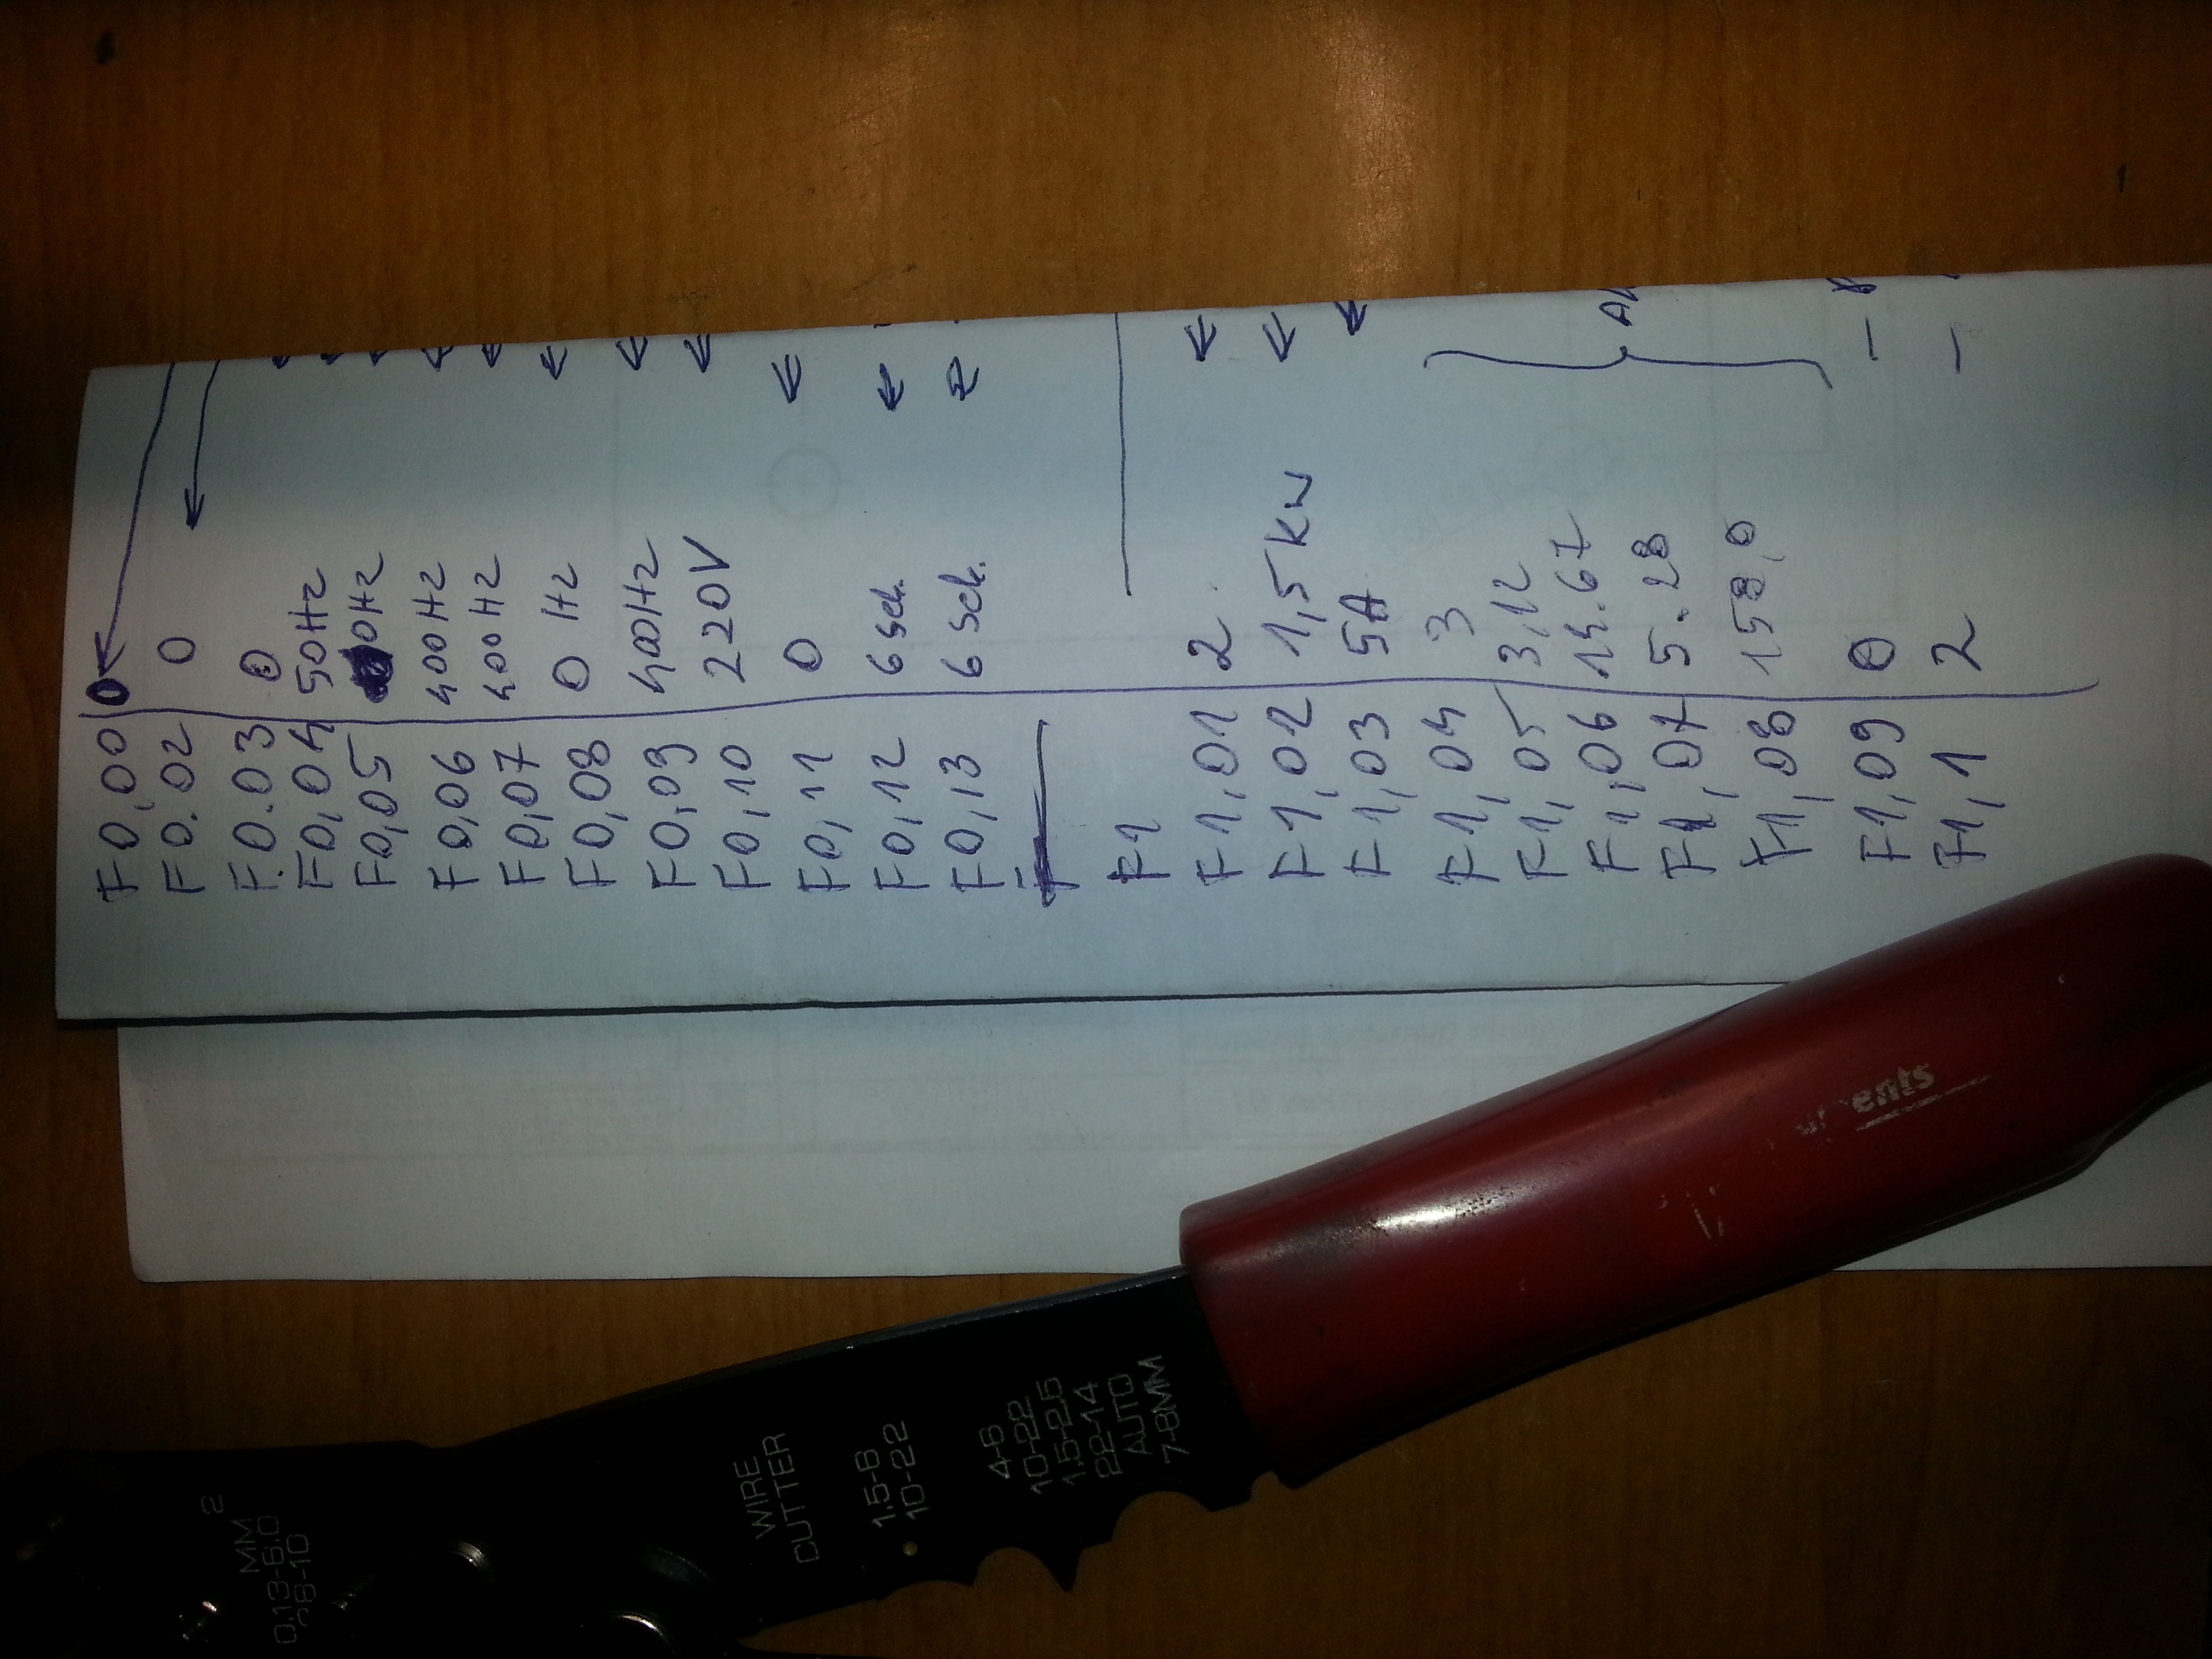 F0,00 0
F0.02 0
F.0.03 0
F0,04 50Hz
F0,05 0Hz
F0,06 400Hz
F0,07 400Hz
F0,08 0 Hz
F0,09 400Hz
F0,10 220V
F0,11 0
F0,12 6 sek.
F0,13 6 sek.
F1
F1,01 2
F1,02 1,5 kW
F1,03 5A
F1,04 3
F1,05 3,12
F1,06 14.67
F1,07 5.28
F1,08 158,0
F1,09 0
F1,1 2
WIRE
CUTTER
1.5-6
10-22
4-6
10-22
1.5-2.5
22-14
AUTO
7-8MM
MM 2
0.13-6.0
26-10